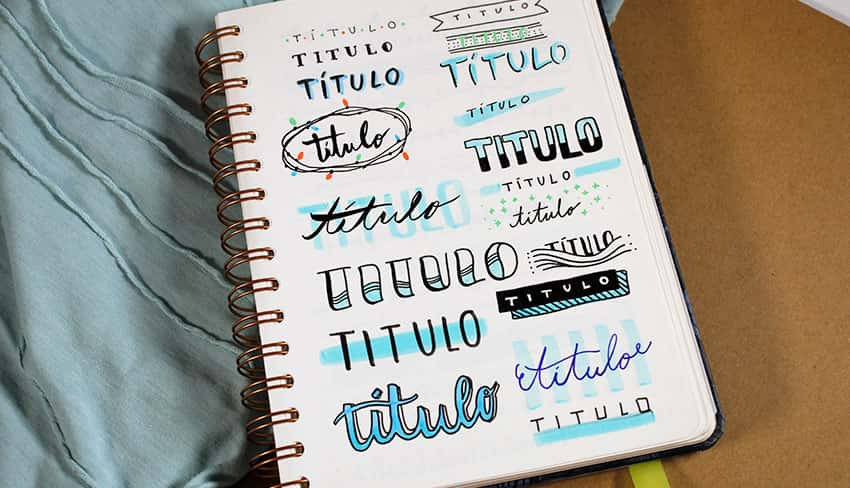 TÍTULO
TITULO
TÍTULO
título
TITULO
título
TITULO
TITULO
título
TITULO
TÍTULO
TÍTULO
TITULO
TÍTULO
título
TÍTULO
TITULO
título
TITULO